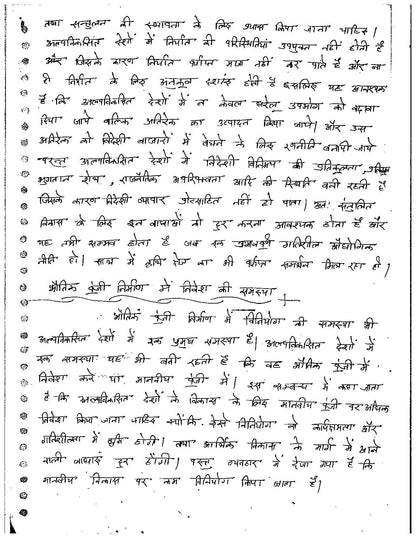 तथा सन्तुलन की स्थापना के लिए प्रयास किया जाना चाहिए।
अल्पविकसित देशों में निर्यात की परिस्थितियां उपयुक्त नहीं होती है
और जिसके कारण निर्यात पर्याप्त मात्रा नहीं कर पाते हैं और ना
ही निर्यात के लिए अनुकूल होती है इसलिए यह आवश्यक
है कि अल्पविकसित देशों में न केवल घरेलू उपभोग को बढ़ावा
दिया जाये बल्कि अतिरेक का उत्पादन किया जाये। और उस
अतिरेक को विदेशी बाजारों में बेचने के लिए रणनीति बनायी जाये
परन्तु अल्पविकसित देशों में विदेशी विनिमय की प्रतिकूलता,
भुगतान शेष, राजनैतिक अपरिपक्वता आदि की स्थिति बनी रहती है
जिसके कारण विदेशी व्यापार प्रोत्साहित नहीं हो पाता। अतः संतुलित
विकास के लिए इन बाधाओं को दूर करना आवश्यक होता है और
यह तभी सम्भव होता है जब एक प्रभावपूर्ण गतिशील औद्योगिक
नीति हो। साथ में कृषि क्षेत्र का भी पर्याप्त समर्थन मिल रहा हो।
भौतिक पूंजी निर्माण में निवेश की समस्या
भौतिक पूंजी निर्माण में विनियोग की समस्या भी
अल्पविकसित देशों में एक प्रमुख समस्या है। अल्पविकसित देशों में
एक समस्या यह भी बनी रहती है कि वह भौतिक पूंजी में
निवेश करे या मानवीय पूंजी में। इस सम्बन्ध में कहा जाता
है कि अल्पविकसित देशों के विकास के लिए मानवीय पूंजी पर अधिक
निवेश किया जाना चाहिए क्योंकि ऐसे विनियोग से कार्यक्षमता और
गतिशीलता में वृद्धि होगी। तथा आर्थिक विकास के मार्ग में आने
वाली बाधाएं दूर होंगी। परन्तु व्यवहार में देखा गया है कि
मानवीय विकास पर कम विनियोग किया जाता है।